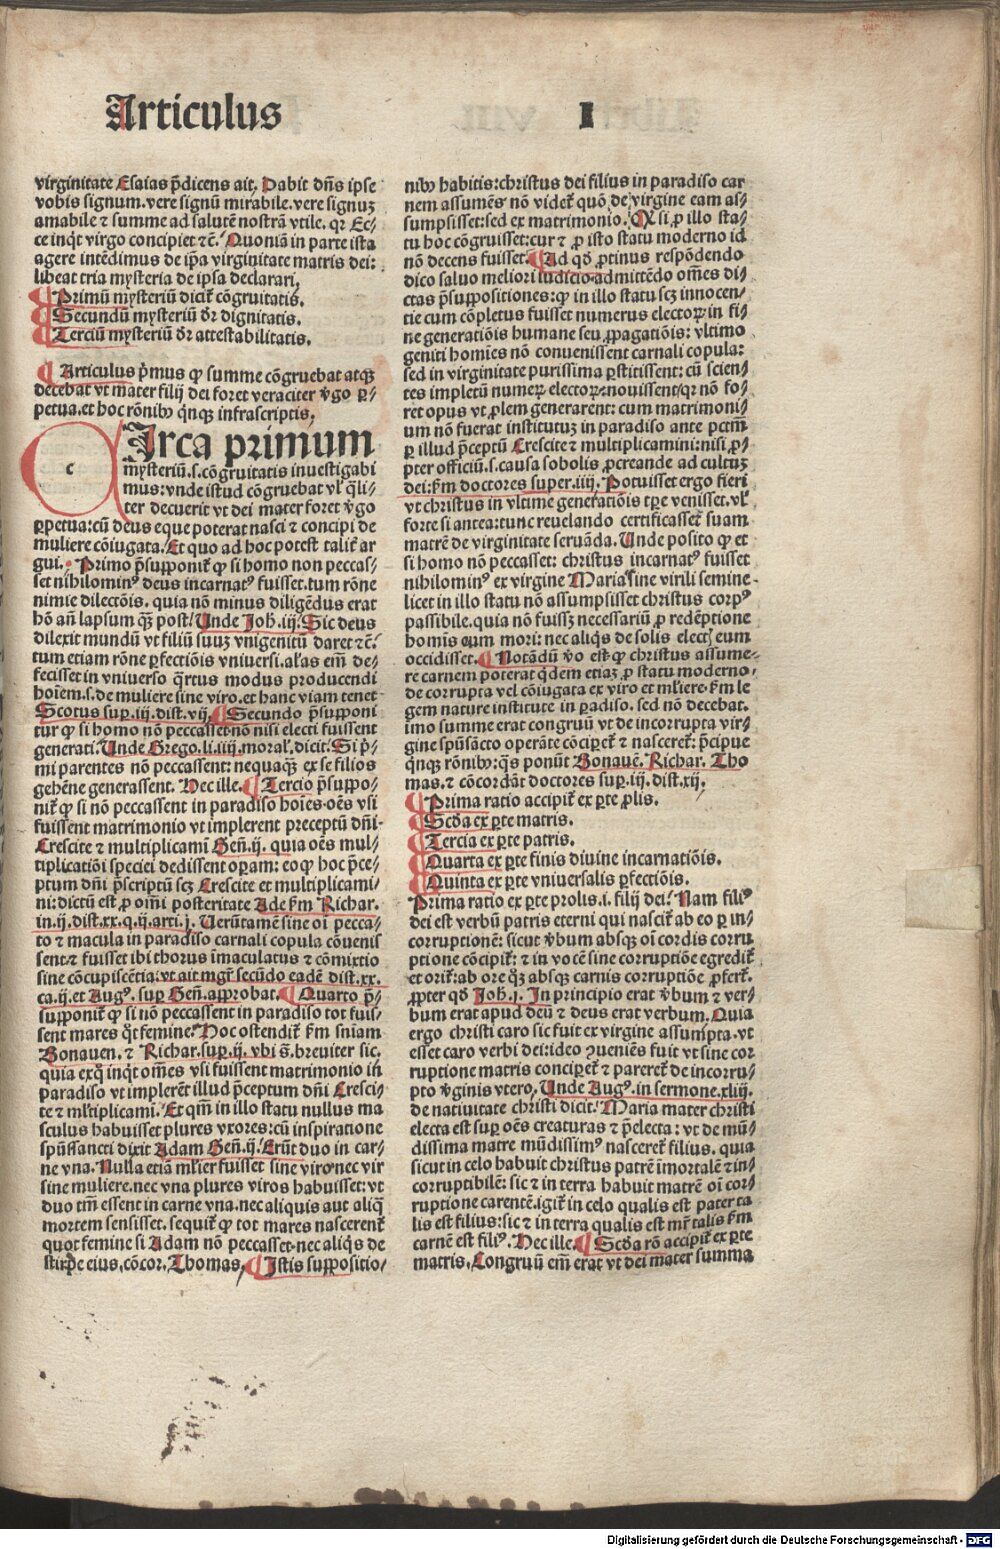 Articulus I
virginitate Esaias p̄dicens ait. Dabit dn̄s ipse
vobis signum. vere signū mirabile. vere signuꝫ
amabile ⁊ summe ad salutē nostrā vtile. qꝛ Ec⸗
ce inqͥt virgo concipiet ⁊c̄. Quoniā in parte ista
agere intēdimus de ip̄a virginitate matris dei:
libeat tria mysteria de ipsa declarari.
¶ Primū mysteriū dicit̄ cōgruitatis.
¶ Secundū mysteriū dr̄ dignitatis.
¶ Terciū mysteriū dr̄ attestabilitatis.
¶ Articulus p̄mus ꝙ summe cōgruebat atqꝫ
decebat vt mater filij dei foret veraciter v̄go ꝑ⸗
petua. et hoc rōnibꝰ qͥnqꝫ infrascriptis.
c Irca primum
mysteriū. s. cōgruitatis inuestigabi
mus: vnde istud cōgruebat vl̓ qͣli⸗
ter decuerit vt dei mater foret v̄go
ꝑpetua: cū deus eque poterat nasci ⁊ concipi de
muliere cōiugata. Et quo ad hoc potest talit̄ ar
gui. Primo p̄supponit̄ ꝙ si homo non peccas⸗
set nihilominꝰ deus incarnatꝰ fuisset. tum rōne
nimie dilectōis. quia nō minus diligēdus erat
hō an̄ lapsum qͣꝫ post. Unde Joh̄. iij. Sic deus
dilexit mundū vt filiū suuꝫ vnigenitū daret ⁊c̄.
tum etiam rōne ꝑfectiōis vniuersi. al̓as em̄ de⸗
fecisset in vniuerso qͣrtus modus producendi
hoīem. s. de muliere sine viro. et hanc viam tenet
Scotus suꝑ. iij. dist. vij. ¶ Secundo p̄supponi
tur ꝙ si homo nō peccasset nō nisi electi fuissent
generati. Unde Grego. li. iiij. moral̓. dicit. Si p̄⸗
mi parentes nō peccassent: nequaqͣꝫ ex se filios
gehēne generassent. Hec ille. ¶ Tercio p̄suppo⸗
nit̄ ꝙ si nō peccassent in paradiso hoīes. oēs vsi
fuissent matrimonio vt implerent preceptū dn̄i.
Crescite ⁊ multiplicamī Gen̄. ij. quia oēs mul⸗
tiplicatiōi speciei dedissent oꝑam: eo ꝙ hoc p̄ce⸗
ptum dn̄i p̄scriptū scꝫ Crescite et multiplicami⸗
ni: dictū est ꝓ om̄i posteritate Ade ẜm Richar.
in. ij. dist. xx. q. ij. arti. j. Uerūtamē sine oī pecca⸗
to ⁊ macula in paradiso carnali copula cōuenis
sent ⁊ fuisset ibi thorus īmaculatus ⁊ cōmixtio
sine cōcupiscētia: vt ait mgr̄ secūdo eadē dist. xx.
ca. ij. et Augꝰ. suꝑ Gen̄. approbat. ¶ Quarto p̄⸗
supponit̄ ꝙ si nō peccassent in paradiso tot fuis⸗
sent mares qͦt femine. Hoc ostendit̄ ẜm sn̄iam
Bonauen. ⁊ Richar. suꝑ. ij. vbi s̄. breuiter sic.
quia exqͦ inqͥt om̄es vsi fuissent matrimonio in
paradiso vt implerēt illud p̄ceptum dn̄i Cresci⸗
te ⁊ ml̓tiplicami. Et qm̄ in illo statu nullus ma
sculus habuisset plures vxores: cū inspiratione
spūssancti dixit Adam Gen̄. ij. Erūt duo in car⸗
ne vna. Nulla etiā ml̓ier fuisset sine viro nec vir
sine muliere. nec vna plures viros habuisset: vt
duo tm̄ essent in carne vna. nec aliquis aut aliqͣ
mortem sensisset. sequit̄ ꝙ tot mares nascerent̄
quot femine si Adam nō peccasset. nec aliqͥs de
stirpe eius. cōcor. Thomas. ¶ Istis suppositio⸗
nibꝰ habitis: christus dei filius in paradiso car
nem assumēs nō videt̄ quō de virgine eam as⸗
sumpsisset: sed ex matrimonio. Qꝛ si ꝓ illo sta⸗
tu hoc cōgruisset: cur ⁊ ꝓ isto statu moderno id
nō decens fuisset. ¶ Ad qd̄ ꝓtinus respōdendo
dico saluo meliori iudicio admittēdo om̄es di⸗
ctas p̄suppositiones: ꝙ in illo statu scꝫ innocen⸗
tie cum cōpletus fuisset numerus electoꝝ in fi⸗
ne generatiōis humane seu ꝓpagatiōis: vltimo
geniti homīes nō conuenissent carnali copula:
sed in virginitate purissima ꝑstitissent: cū scien⸗
tes impletū numeꝝ electoꝝ nouissent qꝛ nō fo⸗
ret opus vt ꝓlem generarent: cum matrimoni⸗
um nō fuerat institutuꝫ in paradiso ante pctm̄
ꝑ illud p̄ceptū Crescite ⁊ multiplicamini: nisi ꝓ⸗
pter officiū. s. causa sobolis ꝓcreande ad cultuꝫ
dei: ẜm doctores super. iiij. Potuisset ergo fieri
vt christus in vltime generatiōis tꝑe venisset. vl̓
forte si antea: tunc reuelando certificasset suam
matrē de virginitate seruāda. Unde posito ꝙ et
si homo nō peccasset: christus incarnatꝰ fuisset
nihilominꝰ ex virgine Maria sine virili semine.
licet in illo statu nō assumpsisset christus corpꝰ
passibile. quia nō fuissꝫ necessariū ꝓ redēptione
homīs eum mori: nec aliqͥs de solis elect̄ eum
occidisset. ¶ Notādū v̄o est ꝙ christus assume⸗
re carnem poterat qͥdem etiaꝫ ꝓ statu moderno.
de corrupta vel cōiugata ex viro et ml̓iere ẜm le
gem nature institute in ꝑadiso. sed nō decebat.
imo summe erat congruū vt de incorrupta vir⸗
gine spūsācto operāte cōciperet̄ ⁊ nasceret̄: p̄cipue
qͥnqꝫ rōnibꝰ: qͣs ponūt Bonauē. Richar. Tho
mas. ⁊ cōcordāt doctores suꝑ. iij. dist. xij.
¶ Prima ratio accipit̄ ex ꝑte ꝓlis.
¶ Scd̄a ex ꝑte matris.
¶ Tercia ex ꝑte patris.
¶ Quarta ex ꝑte finis diuine incarnatiōis.
¶ Quinta ex ꝑte vniuersalis ꝑfectiōis.
Prima ratio ex ꝑte prolis. i. filij dei. Nam filiꝰ
dei est verbū patris eterni qui nascit̄ ab eo ꝑ in⸗
corruptionē: sicut v̄bum absqꝫ oī cordis corru
ptione cōcipit̄: ⁊ in vocē sine corruptiōe egredit̄
et orit̄: ab ore qͦꝫ absqꝫ carnis corruptiōe ꝓfert̄.
ꝓpter qd̄ Joh̄. j. In principio erat v̄bum ⁊ ver⸗
bum erat apud deū ⁊ deus erat verbum. Quia
ergo christi caro sic fuit ex virgine assumpta. vt
esset caro verbi dei: ideo ꝯueniēs fuit vt sine cor
ruptione matris conciperet̄ ⁊ pareret̄ de incorru⸗
pto v̄ginis vtero. Unde Augꝰ. in sermone. xliij.
de natiuitate christi dicit. Maria mater christi
electa est suꝑ oēs creaturas ⁊ p̄electa: vt de mū⸗
dissima matre mūdissimꝰ nasceret̄ filius. quia
sicut in celo habuit christus patrē īmortalē ⁊ in⸗
corruptibilē: sic ⁊ in terra habuit matrē oī cor⸗
ruptione carentē. igit̄ in celo qualis est pater ta
lis est filius: sic ⁊ in terra qualis est mr̄ talis ẜm
carnē est filiꝰ. Hec ille. ¶ Scd̄a rō accipit̄ ex ꝑte
matris. Congruū em̄ erat vt dei mater summa
Digitalisierung gefördert durch die Deutsche Forschungsgemeinschaft - DFG